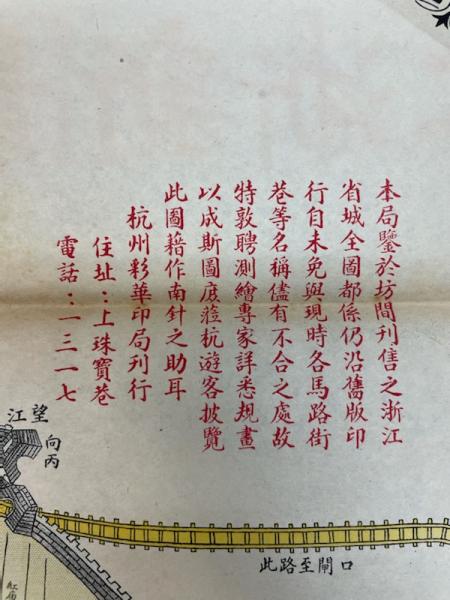 本局鑒於坊間刊售之浙江
省城全圖都係仍沿舊版印
行自未免與現時各馬路街
巷等名稱儘有不合之處故
特敦聘測繪專家詳悉規畫
以成斯圖庋蒞杭遊客披覽
此圖藉作南針之助耳
杭州彩華印局刊行
住址：上珠寶巷
電話：一三一七
望江
向丙
此路至閘口